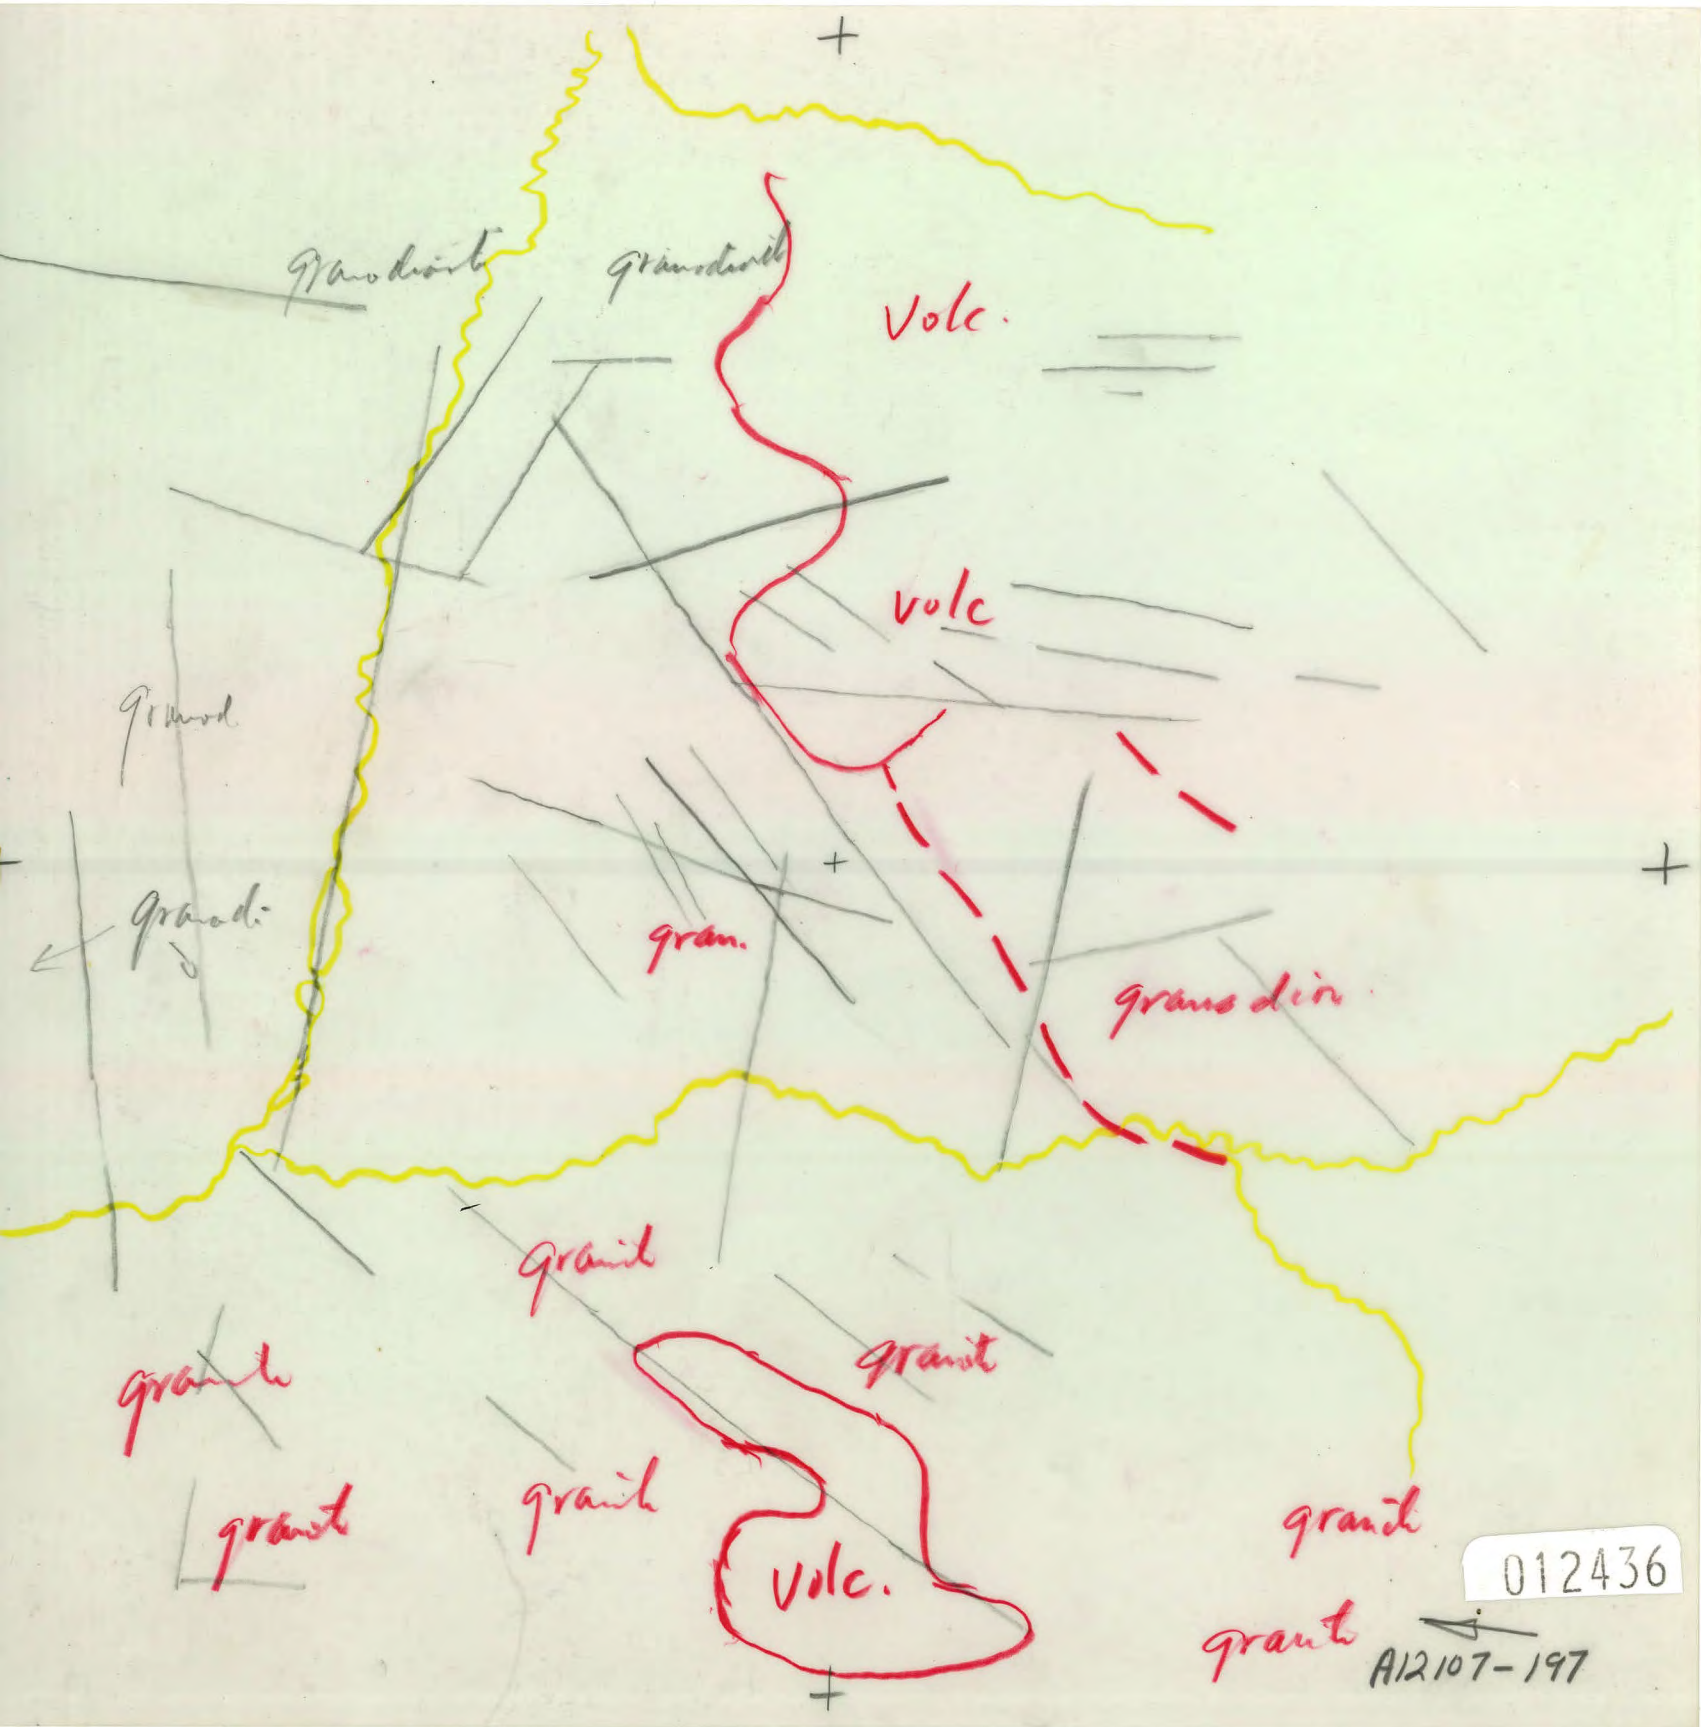 granodiorit
granodiorit
Volc.
volc
granod
granodi
gran.
granodior.
granit
granit
granite
granit
granit
Volc.
granit
012436
granit
A12107-197